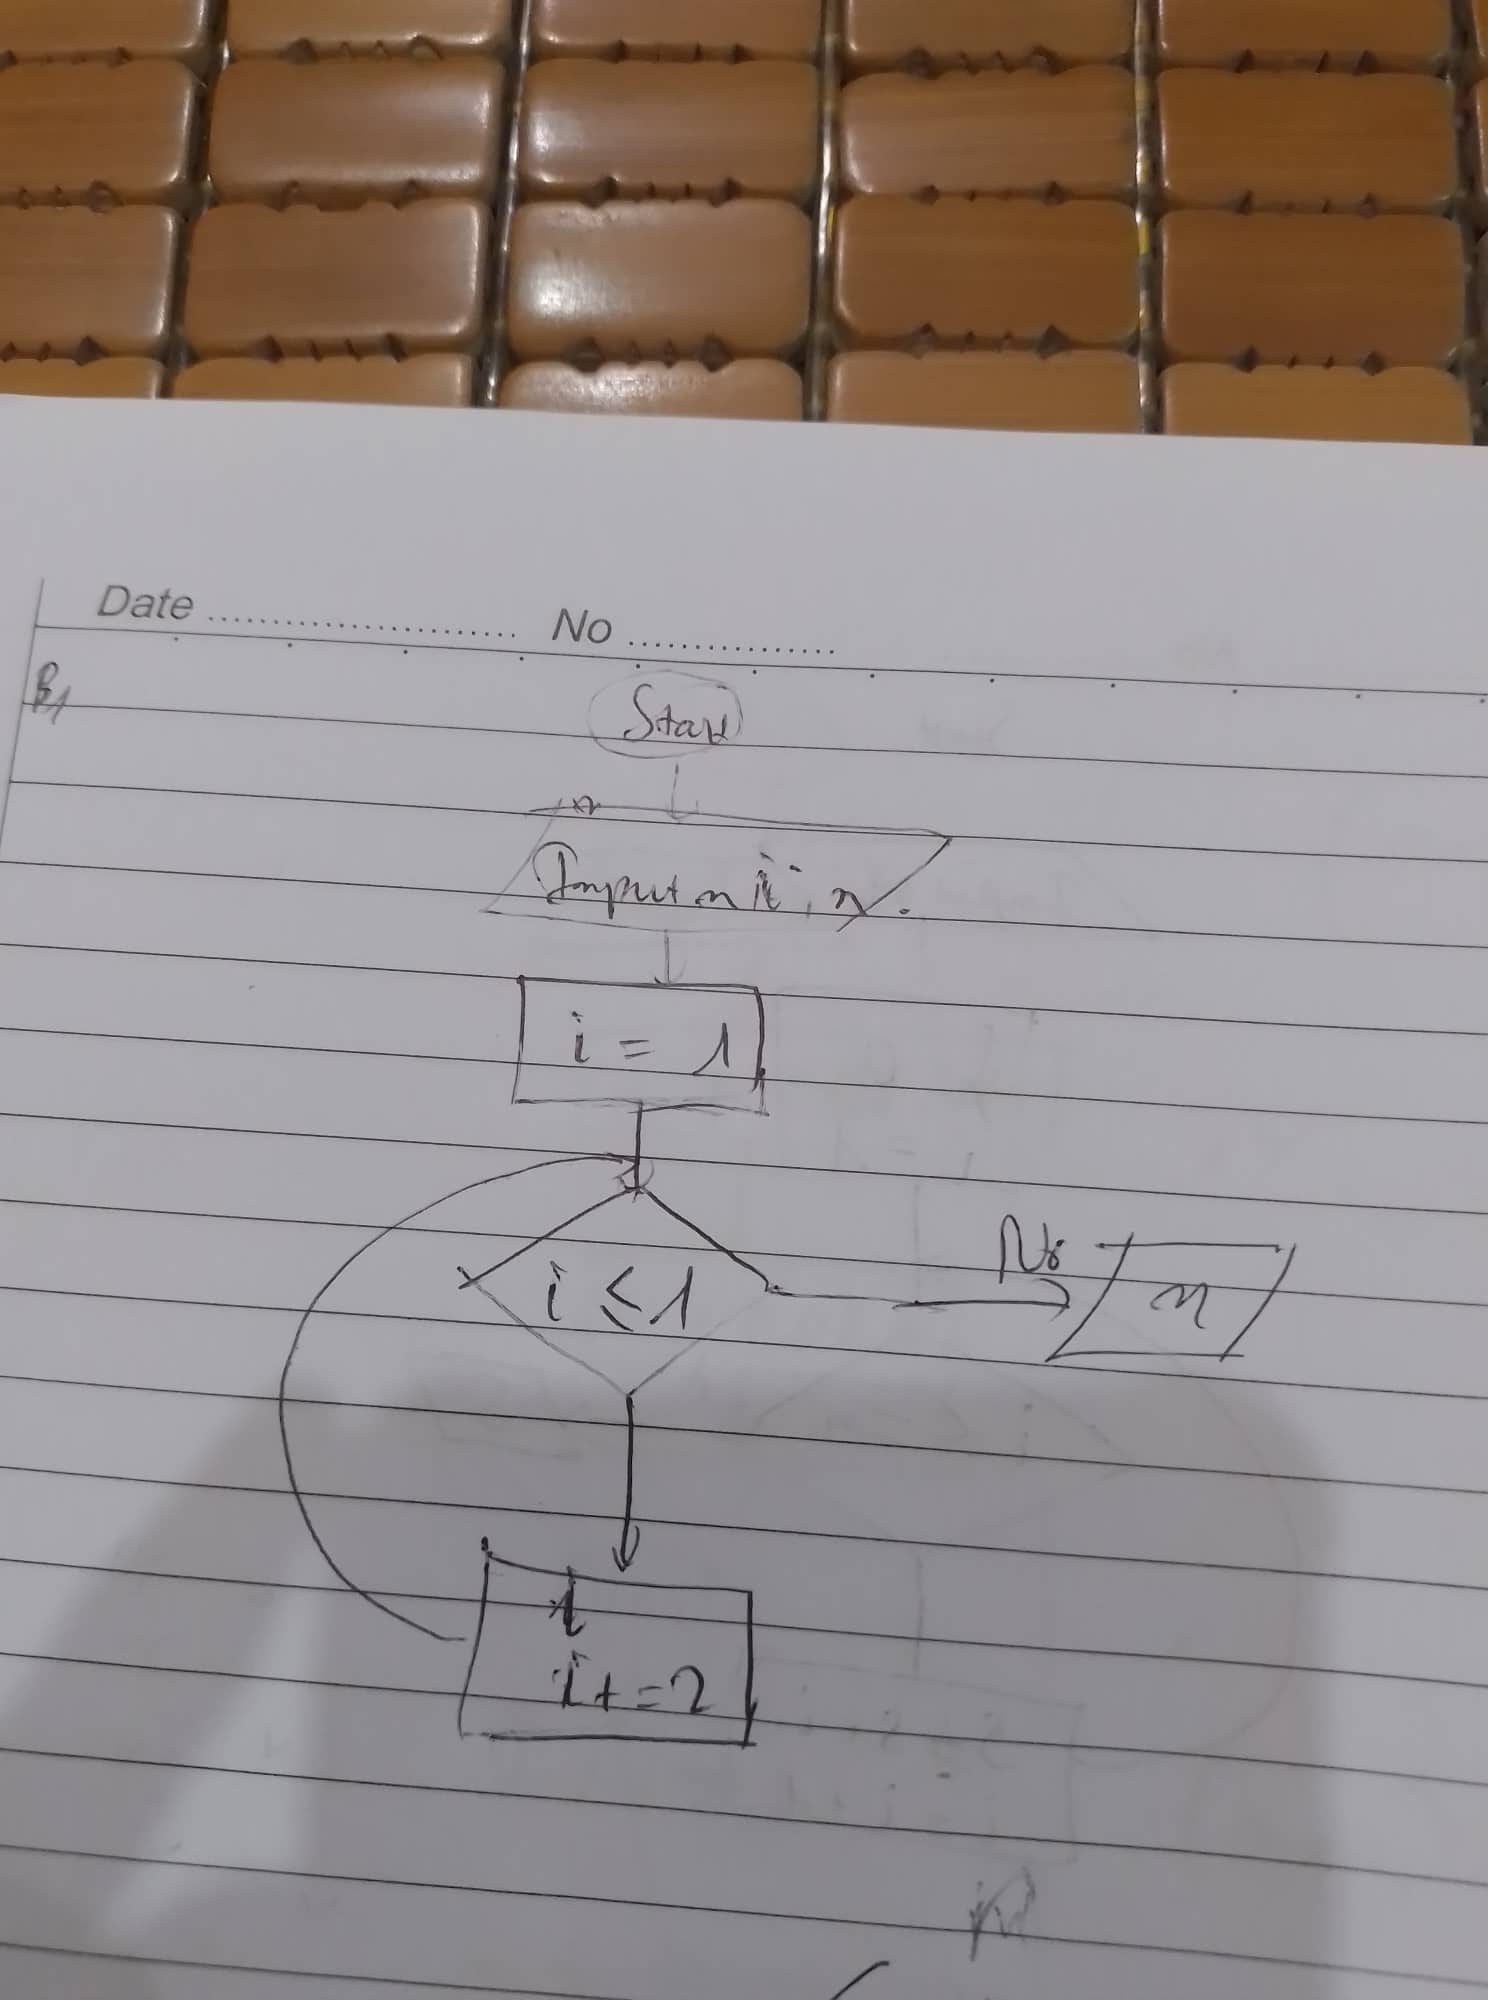 Date ........................ No ................
B1
Start
Input n i, n.
i = 1
i ≤ 1
No
n
i
i+=2